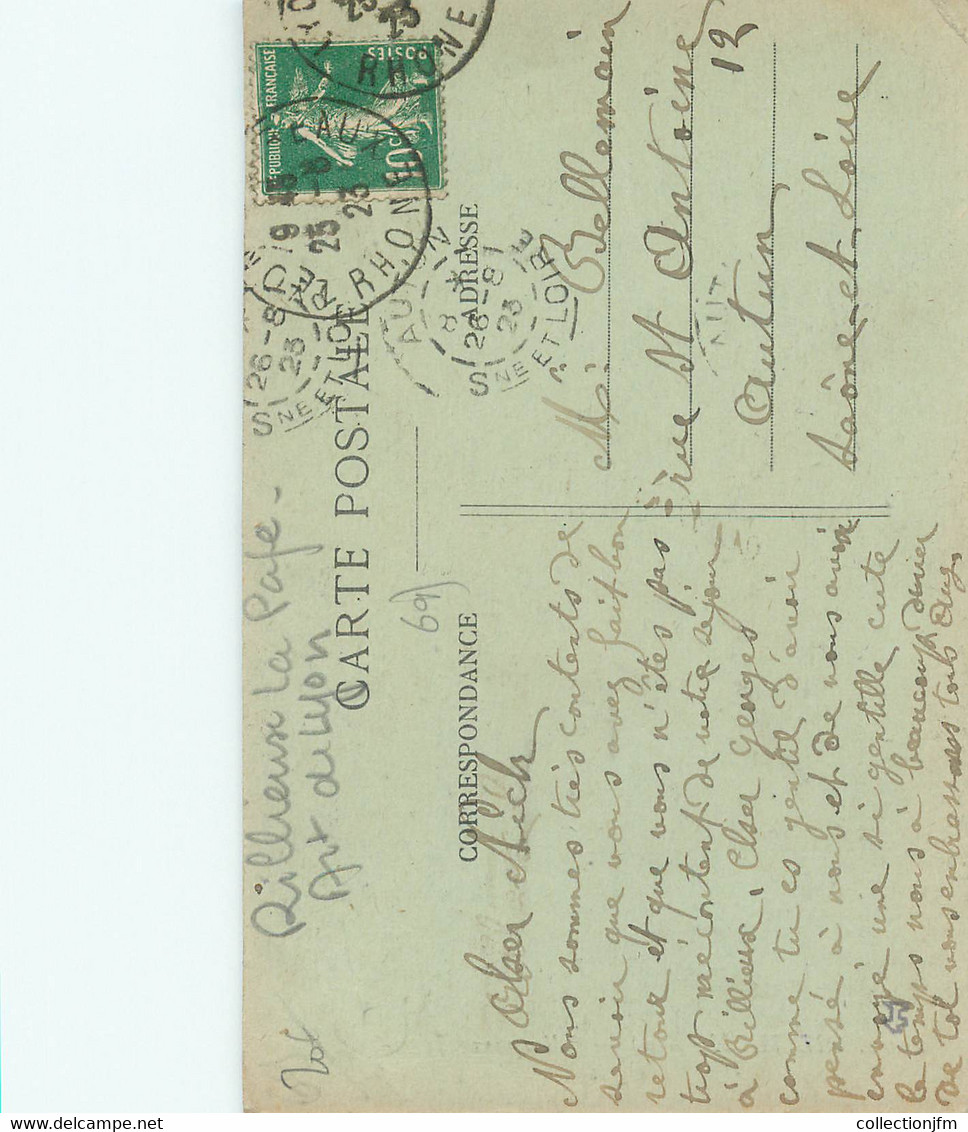 Rillieux La Pape -
Art de Lyon
CARTE POSTALE
69)
CORRESPONDANCE
ADRESSE
RÉPUBLIQUE FRANÇAISE
POSTES
10c
RHONE
23
RHONE
25 - 8
23
AUTUN
8 *
26 - 8
23
SNE ET LOIRE
26 - 8
23
SNE ET LOIRE
Cher
Nous sommes très contents de
savoir que vous avez fait bon
retour et que vous n'êtes pas
trop mécontent de votre séjour
à Rillieux. Cher Georges
comme tu es gentil d'avoir
pensé à nous et de nous avoir
envoyé une si gentille carte
le temps nous à beaucoup
De tot vous embrassons tous
Mr Bellemain
12 rue St Antoine
Autun
Saône et Loire
collectionjfm